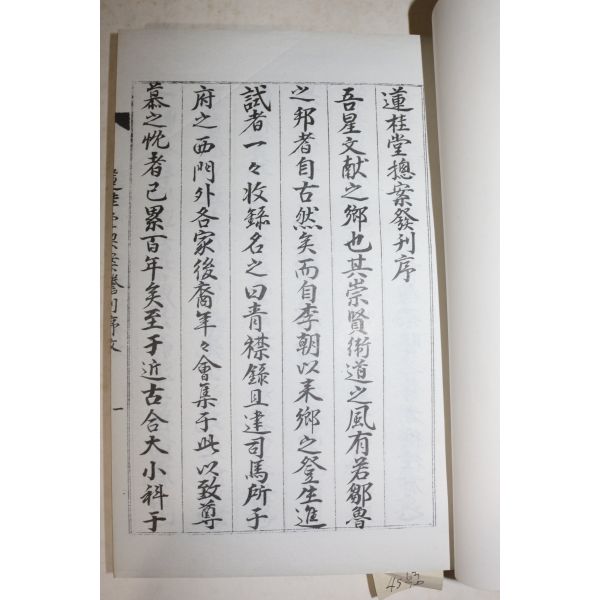 蓮桂堂摠案發刊序
吾星文献之鄉也其崇賢衛道之風有若鄒魯
之邦者自古然矣而自李朝以来鄉之登生進
試者一々收錄名之曰青襟錄且建司馬所于
府之西門外各家後裔年々會集于此以致尊
慕之忱者已累百年矣至于近古合大小科于
蓮桂堂摠案發刊序文
一